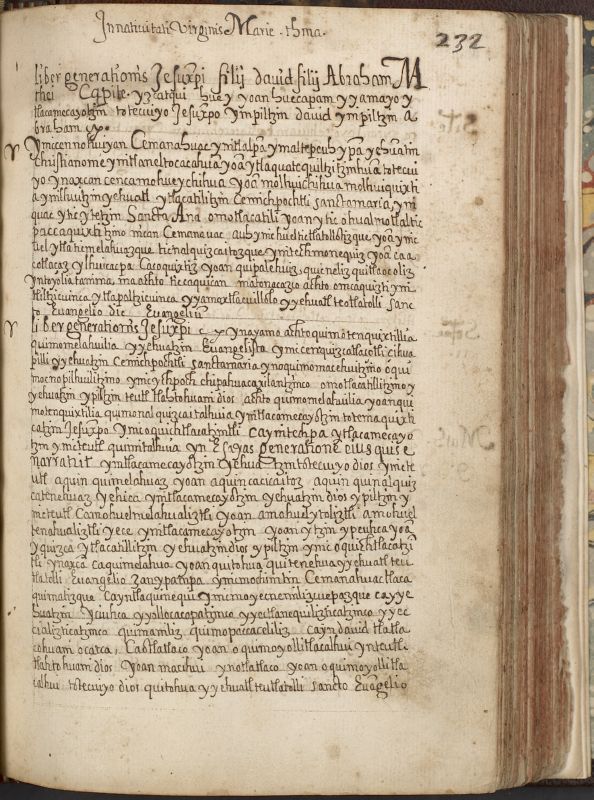 In nativitati Virginis Marie. thma.
232
liber generationis Jesuxpi filij david filij Abraham M
thei Capite. yzcatqui huey yoan huecapam yyamayo y
tlacamecayotzin totecuiyo Jesuxpo ympiltzin david ympiltzin a
braham
Ymiccen nohuiyan Cemanahuac ynitlalpa ymaltepeuh ypa
christianome ynitlaneltocacahua yoa ytlaquatequiltzitzinhua totecui
yo ynaxcan cencamohuey chihua yoa molhuichihua molhuiquixti
a ymilhuitzin yehuatl ytlacatilitzin Cemichpochtli sanctamaria, yni
quac ytic ytetzin Sancta Ana omotlacatili yoan ytic ohualmotlaltic
paccaquixtitzino nican Cemanauac
vel ytlatimelahuazque ticnalquizcaitozque ynitechmonequiz yoa caa
cotlacaz ylhuicacpa Cacoquixtiz yoan quipalehuiz, quicneliz quitlaocoliz
yntoyolia tanima maachto ticcaquican matonacazio achto omcaquizti yni
tliltzicuinca ytlapaltzicuinca yyamaxtlacuillolo yyehuatl teotlatolli sanc
to Evangelio dic Evangeliu
liber generationis Jesuxpi c x ynayamo achto quimotenquixtillia
quimomelahuilia yyehuatzin Evangelista ynicenquizcatlacotli cihua
pilli yyehuatzin Cemichpochtli sanctamaria ynoquimomacehuitzino oqui
mocnopilhuilitzino ynic ychpoch chipahuacaxilantzinco omotlacatilitzino y
yehuatzin ypiltzin teutl tlahtohuani dios achto quimomelahuilia yoan qui
motenquixtilia quimonalquizcaitalhuia ynitlacamecayotzin totemaquixti
catzin Jesuxpo ynic oquichtlacatzintli cayntechpa ytlacamecayo
tzin ynic teutl quimitalhuia yn Esayas generatione eius quis e
narravit ynitlacamecayotzin yehuatzin totecuiyo dios ynicte
utl aquin quimelahuaz yoan aquin cacicaitoz aquin quinalquiz
catenehuaz yehica ynitlacamecayotzin yehuatzin dios ypiltzin y
nicteutl Camohuelmelahualiztli yoan amohuelytoliztli amohuel
tenehualiztli yece ynitlacamecayotzin yoan ytzin ypeuhca yoa
yquizca ytlacatilitzin yehuatzin dios ypiltzin ynic oquichtlacatzi
tli ynaxca caquimelahua yoan quitohua quitenehua yyehuatl teu
tlatolli Evangelio zanypatnpa ynimochintin Cemanahuactlaca
quimatizque cayntlaquinequi ynicmoyecnemilizcuepazque cayye
huatzin ycnihca yyollocacopatzinco yyectlanequiliztlicatzinco yyec
tializticatzinco quinamiliz quimopaccaceliliz cayn david tlatla
cohuani ocatca, Caotlatlaco yoan oquimoyollitlacalhui ynteutl
tlahtohuani dios yoan macihui ynotlatlaco yoan oquimoyollitla
calhui totecuiyo dios quitohua yyehuatl teutlatolli sancto Evangelio